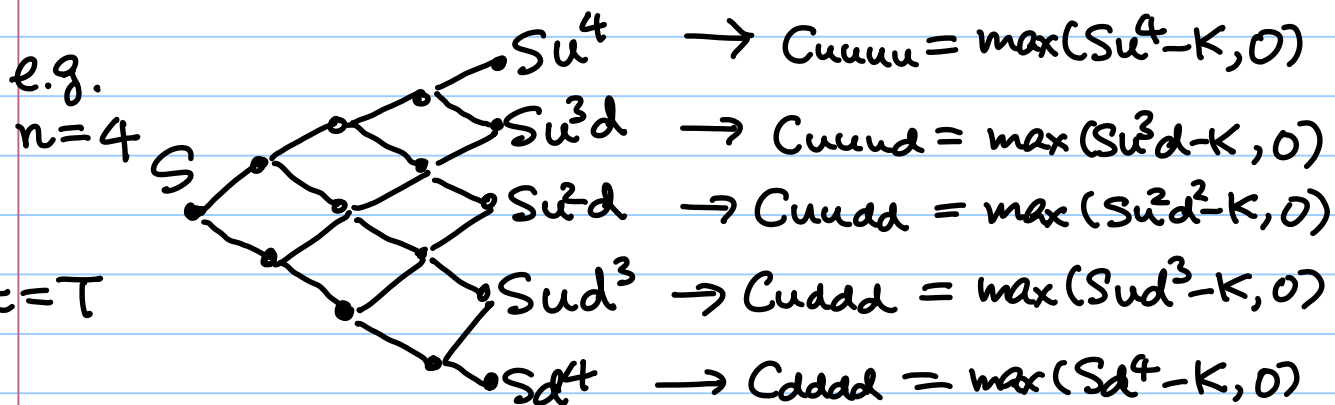 e.g.
n=4
S
Su⁴ → Cuuuu = max(Su⁴-K, 0)
Su³d → Cuuud = max(Su³d-K, 0)
Su²d → Cuudd = max(Su²d²-K, 0)
t=T
Sud³ → Cuddd = max(Sud³-K, 0)
Sd⁴ → Cdddd = max(Sd⁴-K, 0)